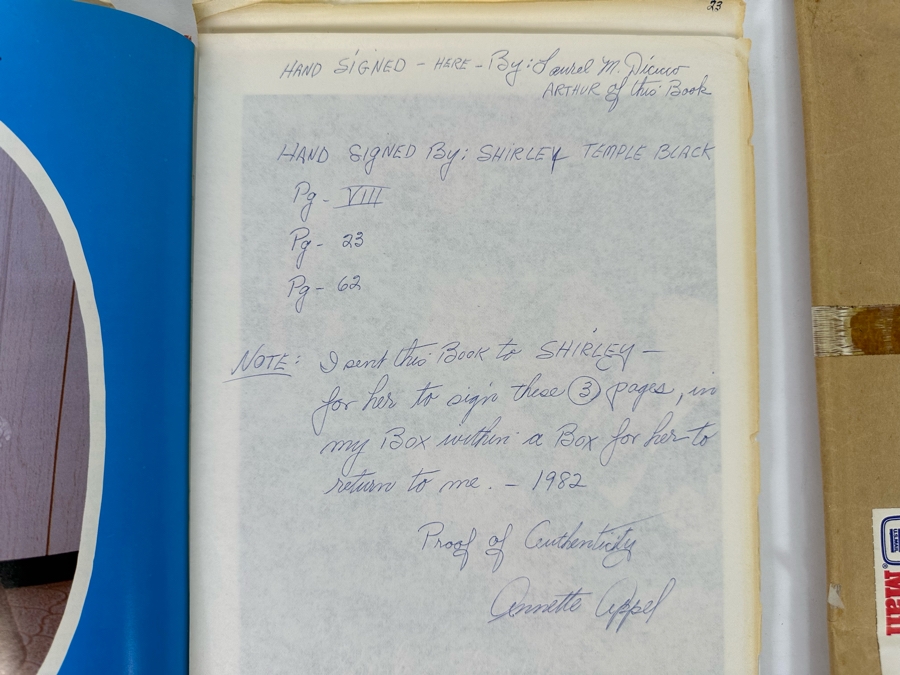 23
HAND SIGNED - HERE - By: Laurel M. Dicuio
ARTHUR of this Book
HAND SIGNED By: SHIRLEY TEMPLE BLACK
Pg - VIII
Pg - 23
Pg - 62
NOTE: I sent this Book to SHIRLEY -
for her to sign these 3 pages, in
my Box within a Box for her to
return to me. - 1982
Proof of Authenticity
Annette Appel
Mail